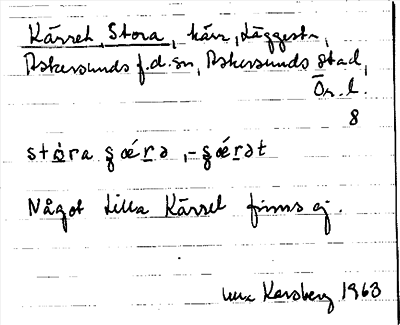 Kärret, Stora, kärr, Läggesta,
Askersunds f.d. sn, Askersunds stad,
Ör. l.
8
stòra ʂǽrə, -ʂǽrət
Något Lilla Kärret finns ej.
Karsberg 1963